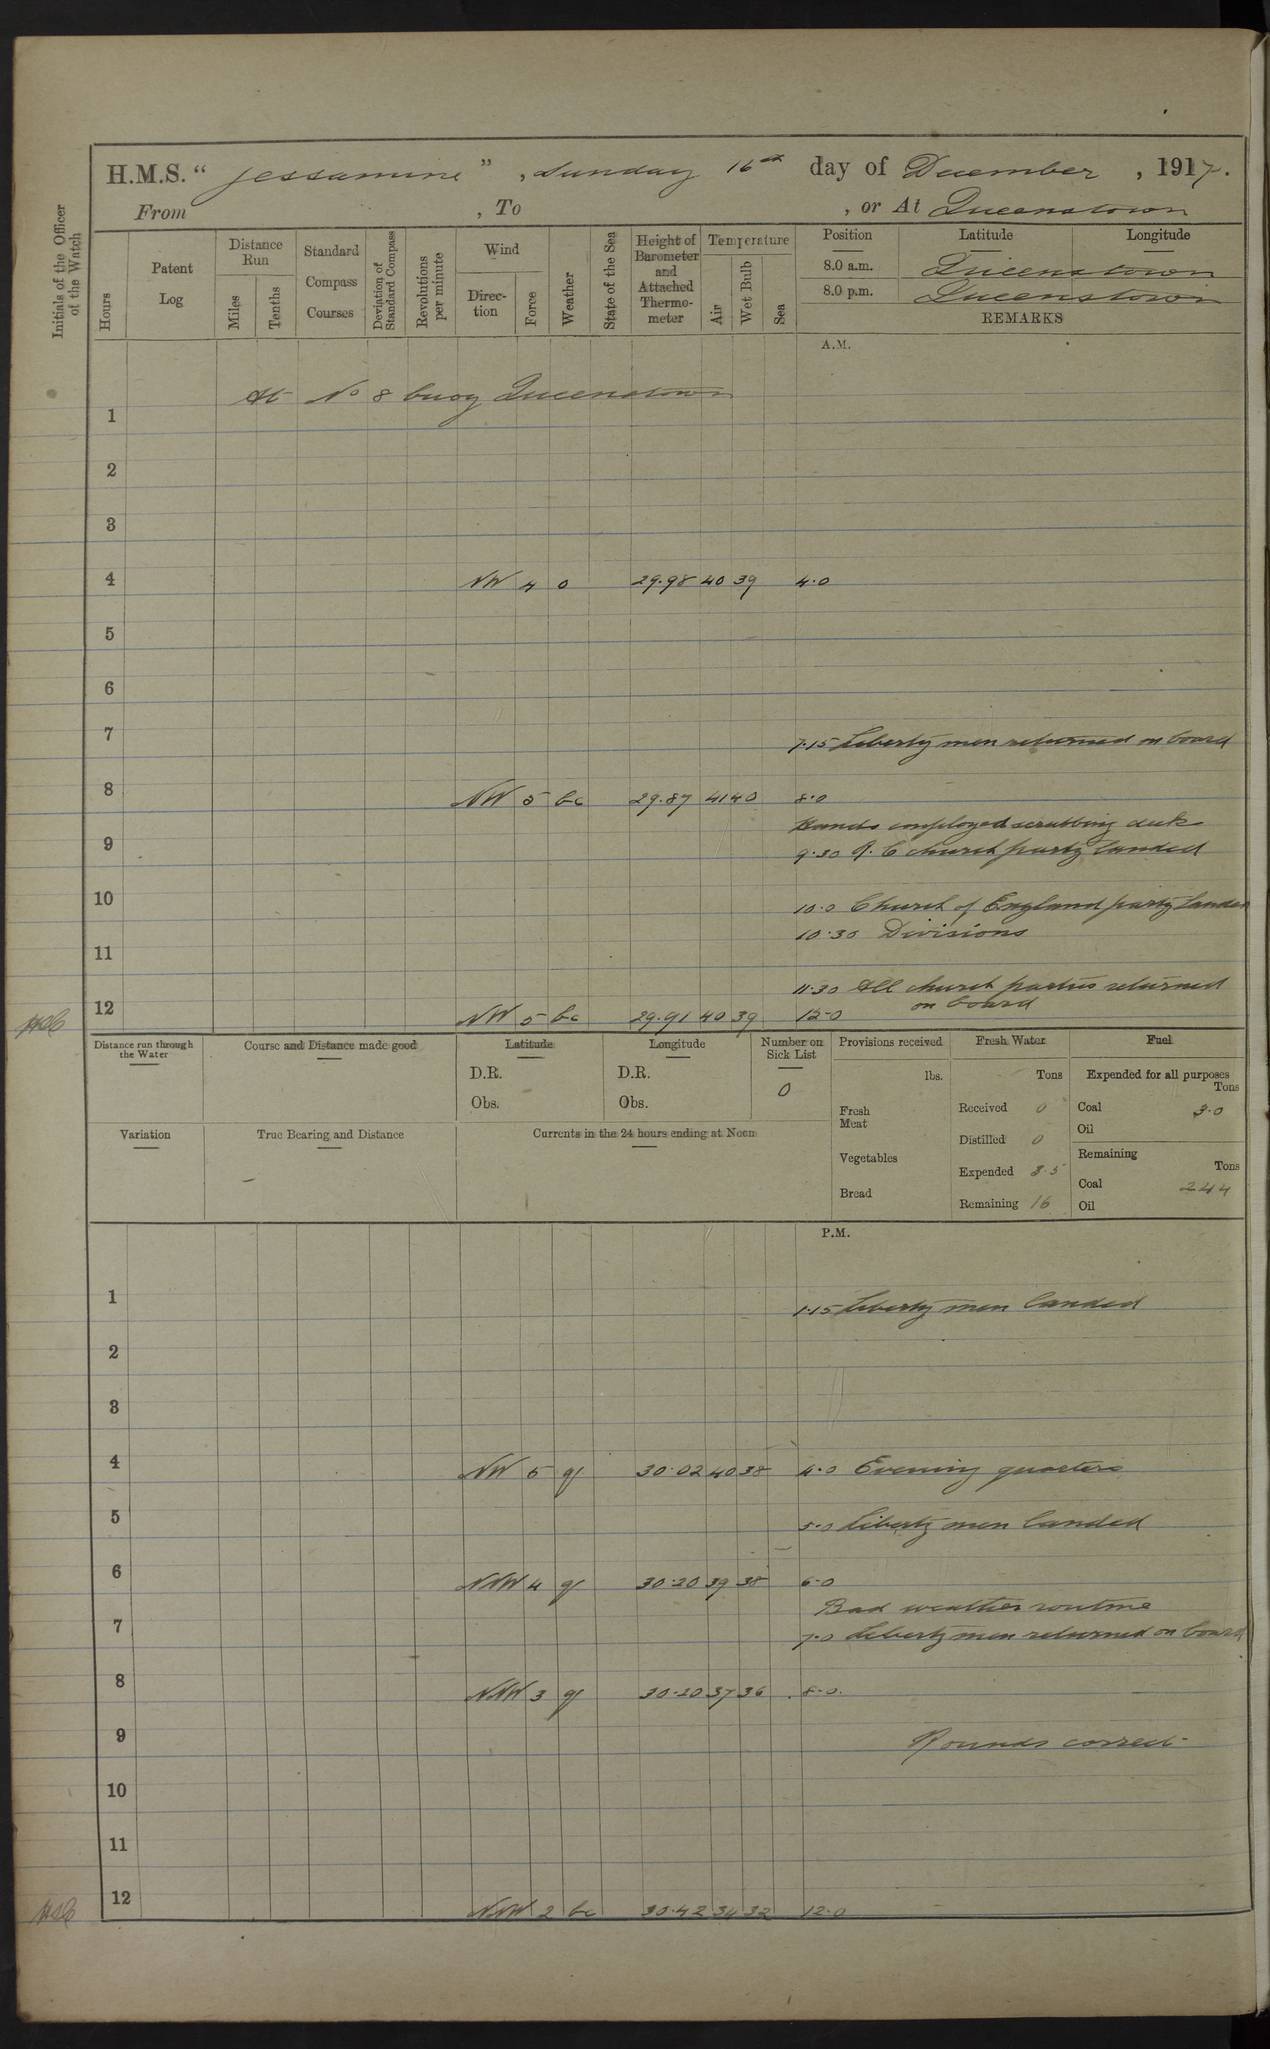 H.M.S. " Jessamine ", Sunday 16th day of December, 1917.
From , To , or At Queenstown
Initials of the Officer of the Watch
Hours
Patent Log
Distance Run
Miles
Tenths
Standard Compass Courses
Deviation of Standard Compass
Revolutions per minute
Wind
Direc-tion
Force
Weather
State of the Sea
Height of Barometer and Attached Thermo-meter
Temperature
Air
Wet Bulb
Sea
Position Latitude Longitude
8.0 a.m. Queenstown
8.0 p.m. Queenstown
REMARKS
A.M.
At No 8 buoy Queenstown
1
2
3
4 NW 4 o 29.98 40 39 4.0
5
6
7 7.15 Liberty men returned on board
8 NW 5 bc 29.87 41 40 8.0
Hands employed scrubbing decks
9 9.30 R.C church party landed
10 10.0 Church of England party landed
10.30 Divisions
11
11.30 All church parties returned
on board
12 NW 5 bc 29.91 40 39 12.0
Distance run through the Water
Course and Distance made good
Latitude
D.R.
Obs.
Longitude
D.R.
Obs.
Number on Sick List
0
Provisions received
lbs.
Fresh Meat
Vegetables
Bread
Fresh Water
Tons
Received 0
Distilled 0
Expended 3.5
Remaining 16
Fuel
Expended for all purposes
Tons
Coal 3.0
Oil
Remaining
Tons
Coal 244
Oil
Variation
True Bearing and Distance
Currents in the 24 hours ending at Noon
P.M.
1 1.15 Liberty men landed
2
3
4 NW 5 q 30.02 40 38 4.0 Evening quarters
5 5.0 Liberty men landed
6 NNW 4 q 30.20 39 38 6.0
Bad weather routine
7 7.0 Liberty men returned on board
8 NNW 3 q 30.20 37 36 8.0
9 Rounds correct
10
11
12 NNW 2 bc 30.42 34 32 12.0